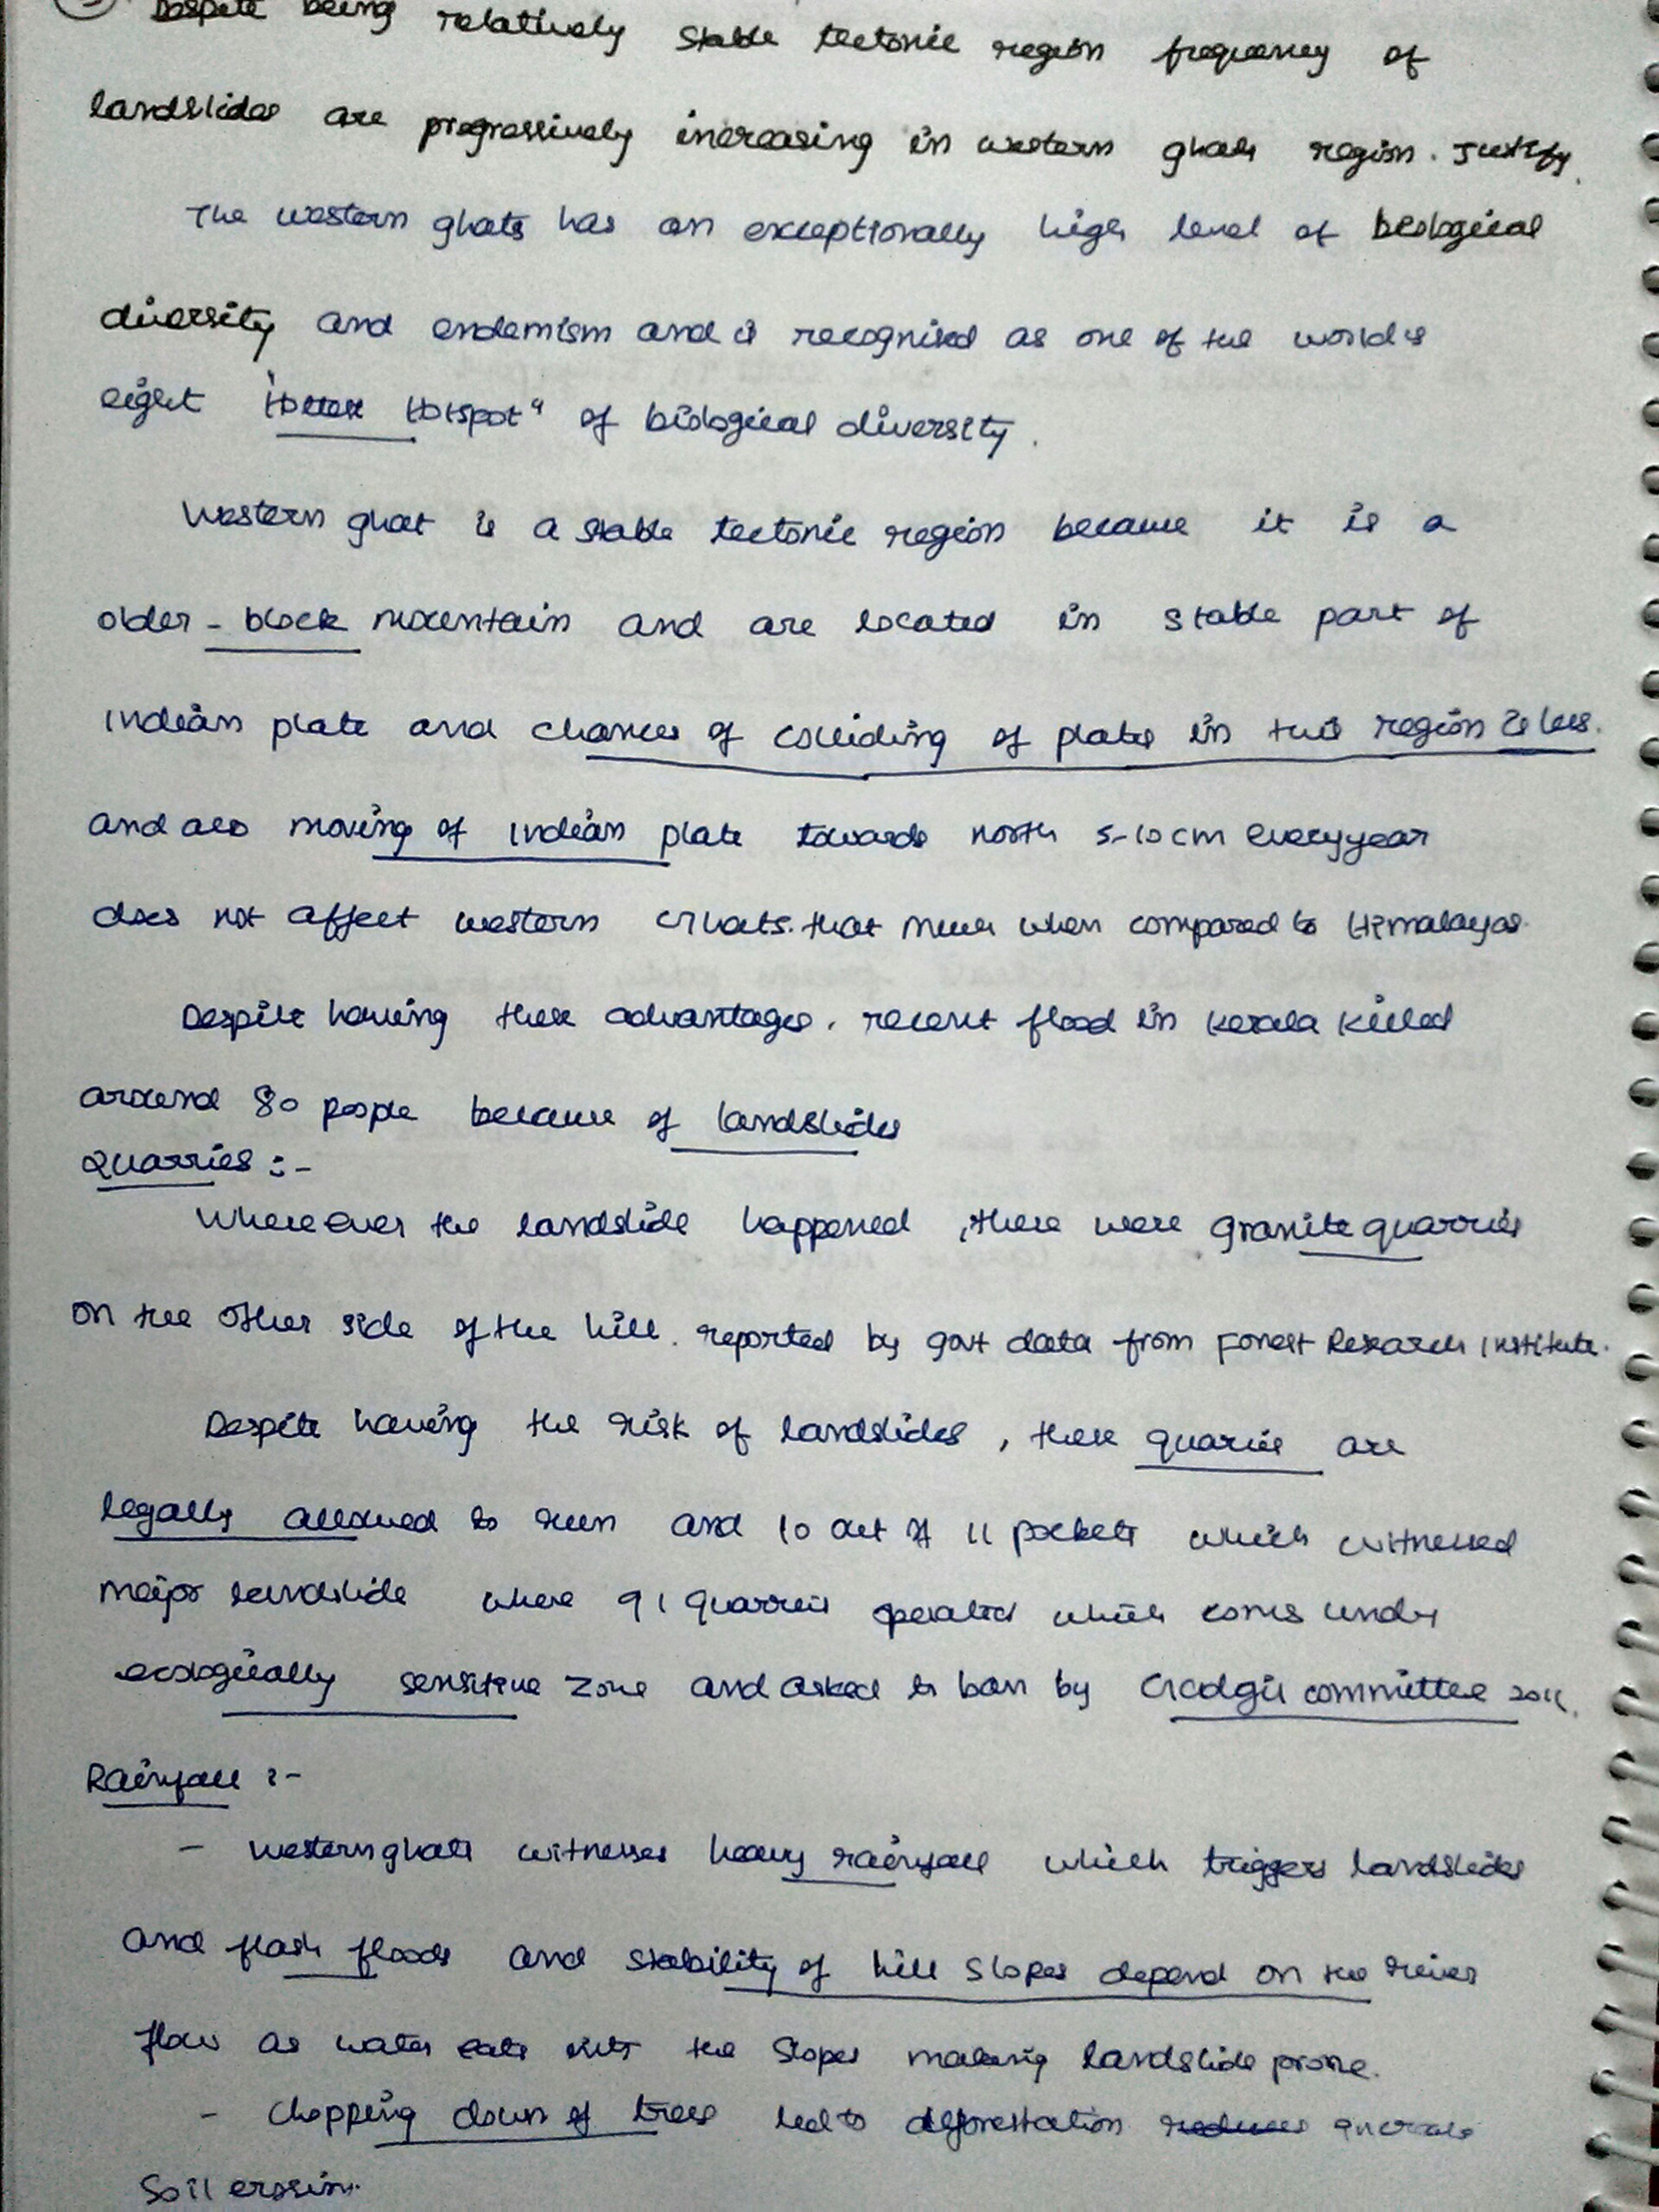 Despite being relatively stable tectonic region frequency of
landslides are progressively increasing in western ghats region. Justify.
The western ghats has an exceptionally high level of biological
diversity and endemism and is recognised as one of the world's
eight "Hottest Hotspot" of biological diversity.
Western ghat is a stable tectonic region because it is a
older - block mountain and are located in stable part of
Indian plate and chances of colliding of plates in this region is less.
and also moving of Indian plate towards north 5-10 cm every year
does not affect western Ghats. that much when compared to Himalayas.
Despite having these advantages, recent flood in Kerala killed
around 80 people because of landslides
Quarries :-
Where ever the landslide happened, there were granite quarries
on the other side of the hill. reported by govt data from Forest Research Institute.
Despite having the risk of landslides, these quaries are
legally allowed to run and 10 out of 11 pockets which witnessed
major landslide where 91 quarries operated which comes under
ecologically sensitive zone and asked to ban by Gadgil committee 2011.
Rainfall :-
- Western ghats witnesses heavy rainfall which triggers landslides
and flash floods and stability of hill slopes depend on the river
flow as water cuts the slopes making landslide prone.
- Chopping down of trees led to deforestation reduces increase
Soil erosion.